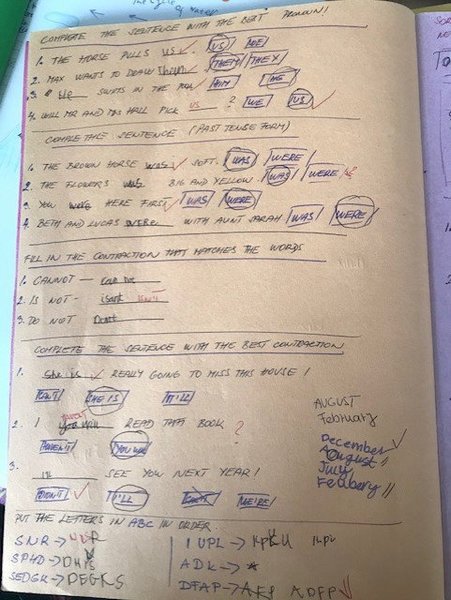 COMPLETE THE SENTENCE WITH THE BEST PRONOUN!
1. THE HORSE PULLS US. US / WE
2. MAX WANTS TO DRAW Them THEM / THEY
3. He SWIMS IN THE HIM / HE
4. WILL MR AND MRS HALL PICK US ? WE / US
COMPLETE THE SENTENCE (PAST TENSE FORM)
1. THE BROWN HORSE was SOFT. WAS / WERE /
2. THE FLOWERS was BIG AND YELLOW. WAS / WERE /
3. YOU were HERE FIRST WAS / WERE /
4. BETH AND LUCAS were WITH AUNT SARAH WAS / WERE /
FILL IN THE CONTRACTION THAT MATCHES THE WORDS
1. CANNOT —
2. IS NOT - isant isn't
3. DO NOT Dont
COMPLETE THE SENTENCE WITH THE BEST CONTRACTION
1. She is REALLY GOING TO MISS THIS HOUSE!
CAN'T SHE IS IT'LL
2. I READ THAT BOOK ?
HAVEN'T
3. SEE YOU NEXT YEAR!
DIDN'T I'LL WE'RE
AUGUST
February
December
August
July
Feubery
PUT THE LETTERS IN ABC IN ORDER
SNR →
SPHD → DHPS
SEDGK → DEGKS
IUPL →
ADK →
DFAP → ADFP